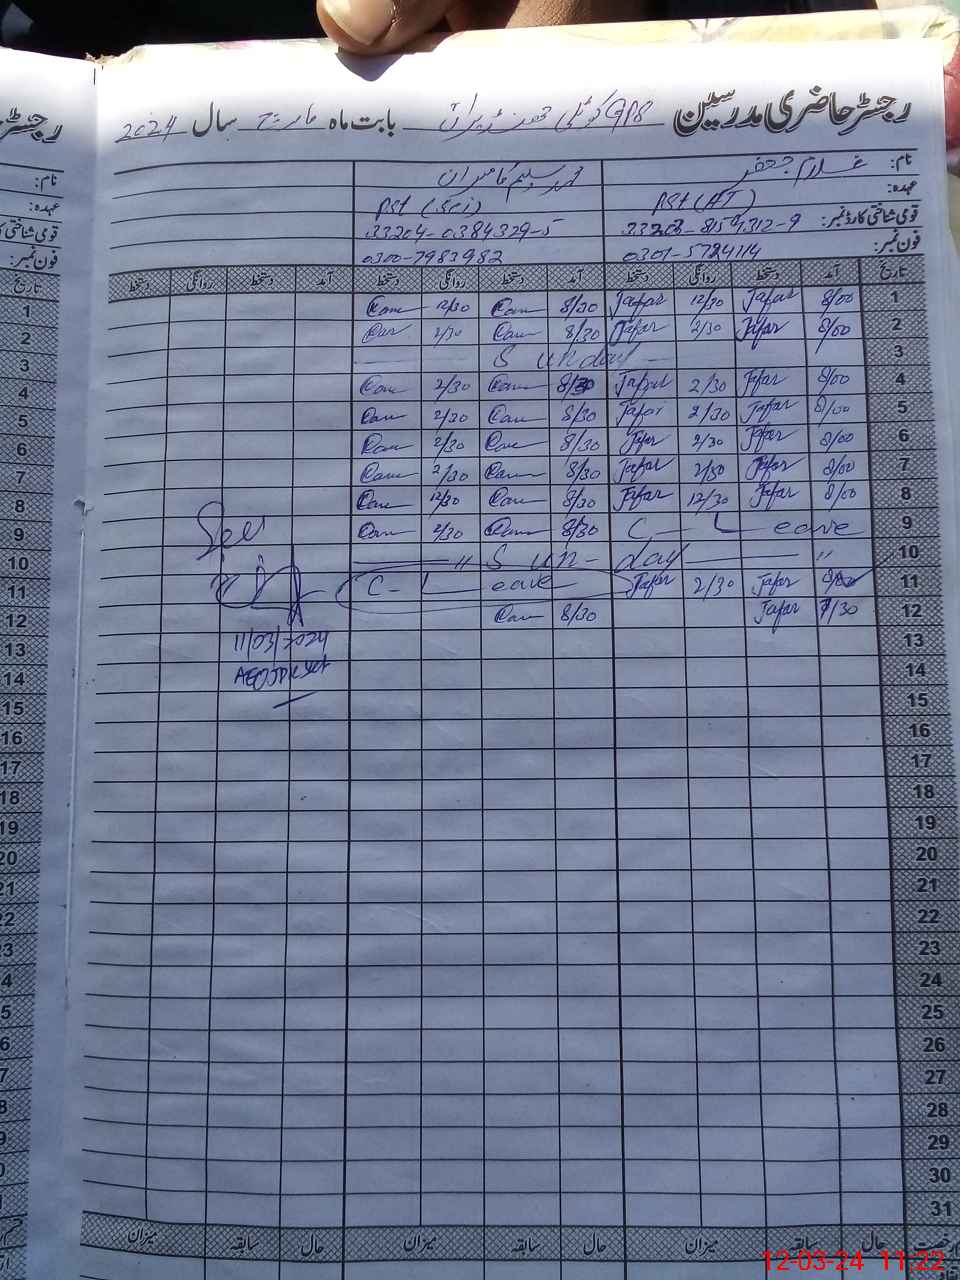 رجسٹر حاضری مدرسین GPS کوٹلی بابت ماہ مارچ سال 2024
نام: غلام جعفر محمد وسیم کامران
عہدہ: PST (HT) PST (Sci)
قومی شناختی کارڈ نمبر: 33204-0384329-5
فون نمبر: 0301-5724114 0300-7983982
تاریخ آمد دستخط روانگی دستخط آمد دستخط روانگی دستخط آمد دستخط روانگی دستخط
1 8/00 Jafar 12/30 Jafar 8/30 Cam 12/30 Cam
2 8/00 Jafar 2/30 Jafar 8/30 Cam 2/30 Cam
3 Sunday
4 8/00 Jafar 2/30 Jafar 8/30 Cam 2/30 Cam
5 8/00 Jafar 2/30 Jafar 8/30 Cam 2/30 Cam
6 8/00 Jafar 2/30 Jafar 8/30 Cam 2/30 Cam
7 8/00 Jafar 2/30 Jafar 8/30 Cam 2/30 Cam
8 8/00 Jafar 12/30 Jafar 8/30 Cam 12/30 Cam
9 C-Leave 8/30 Cam 2/30 Cam
10 " Sun-day "
11 8/00 Jafar 2/30 Jafar C-Leave
12 7/30 Jafar 8/30 Cam
13 11/03/2024
14
15
16
17
18
19
20
21
22
23
24
25
26
27
28
29
30
31
حال سابقہ میزان حال سابقہ میزان حال سابقہ میزان
12-03-24 11:22